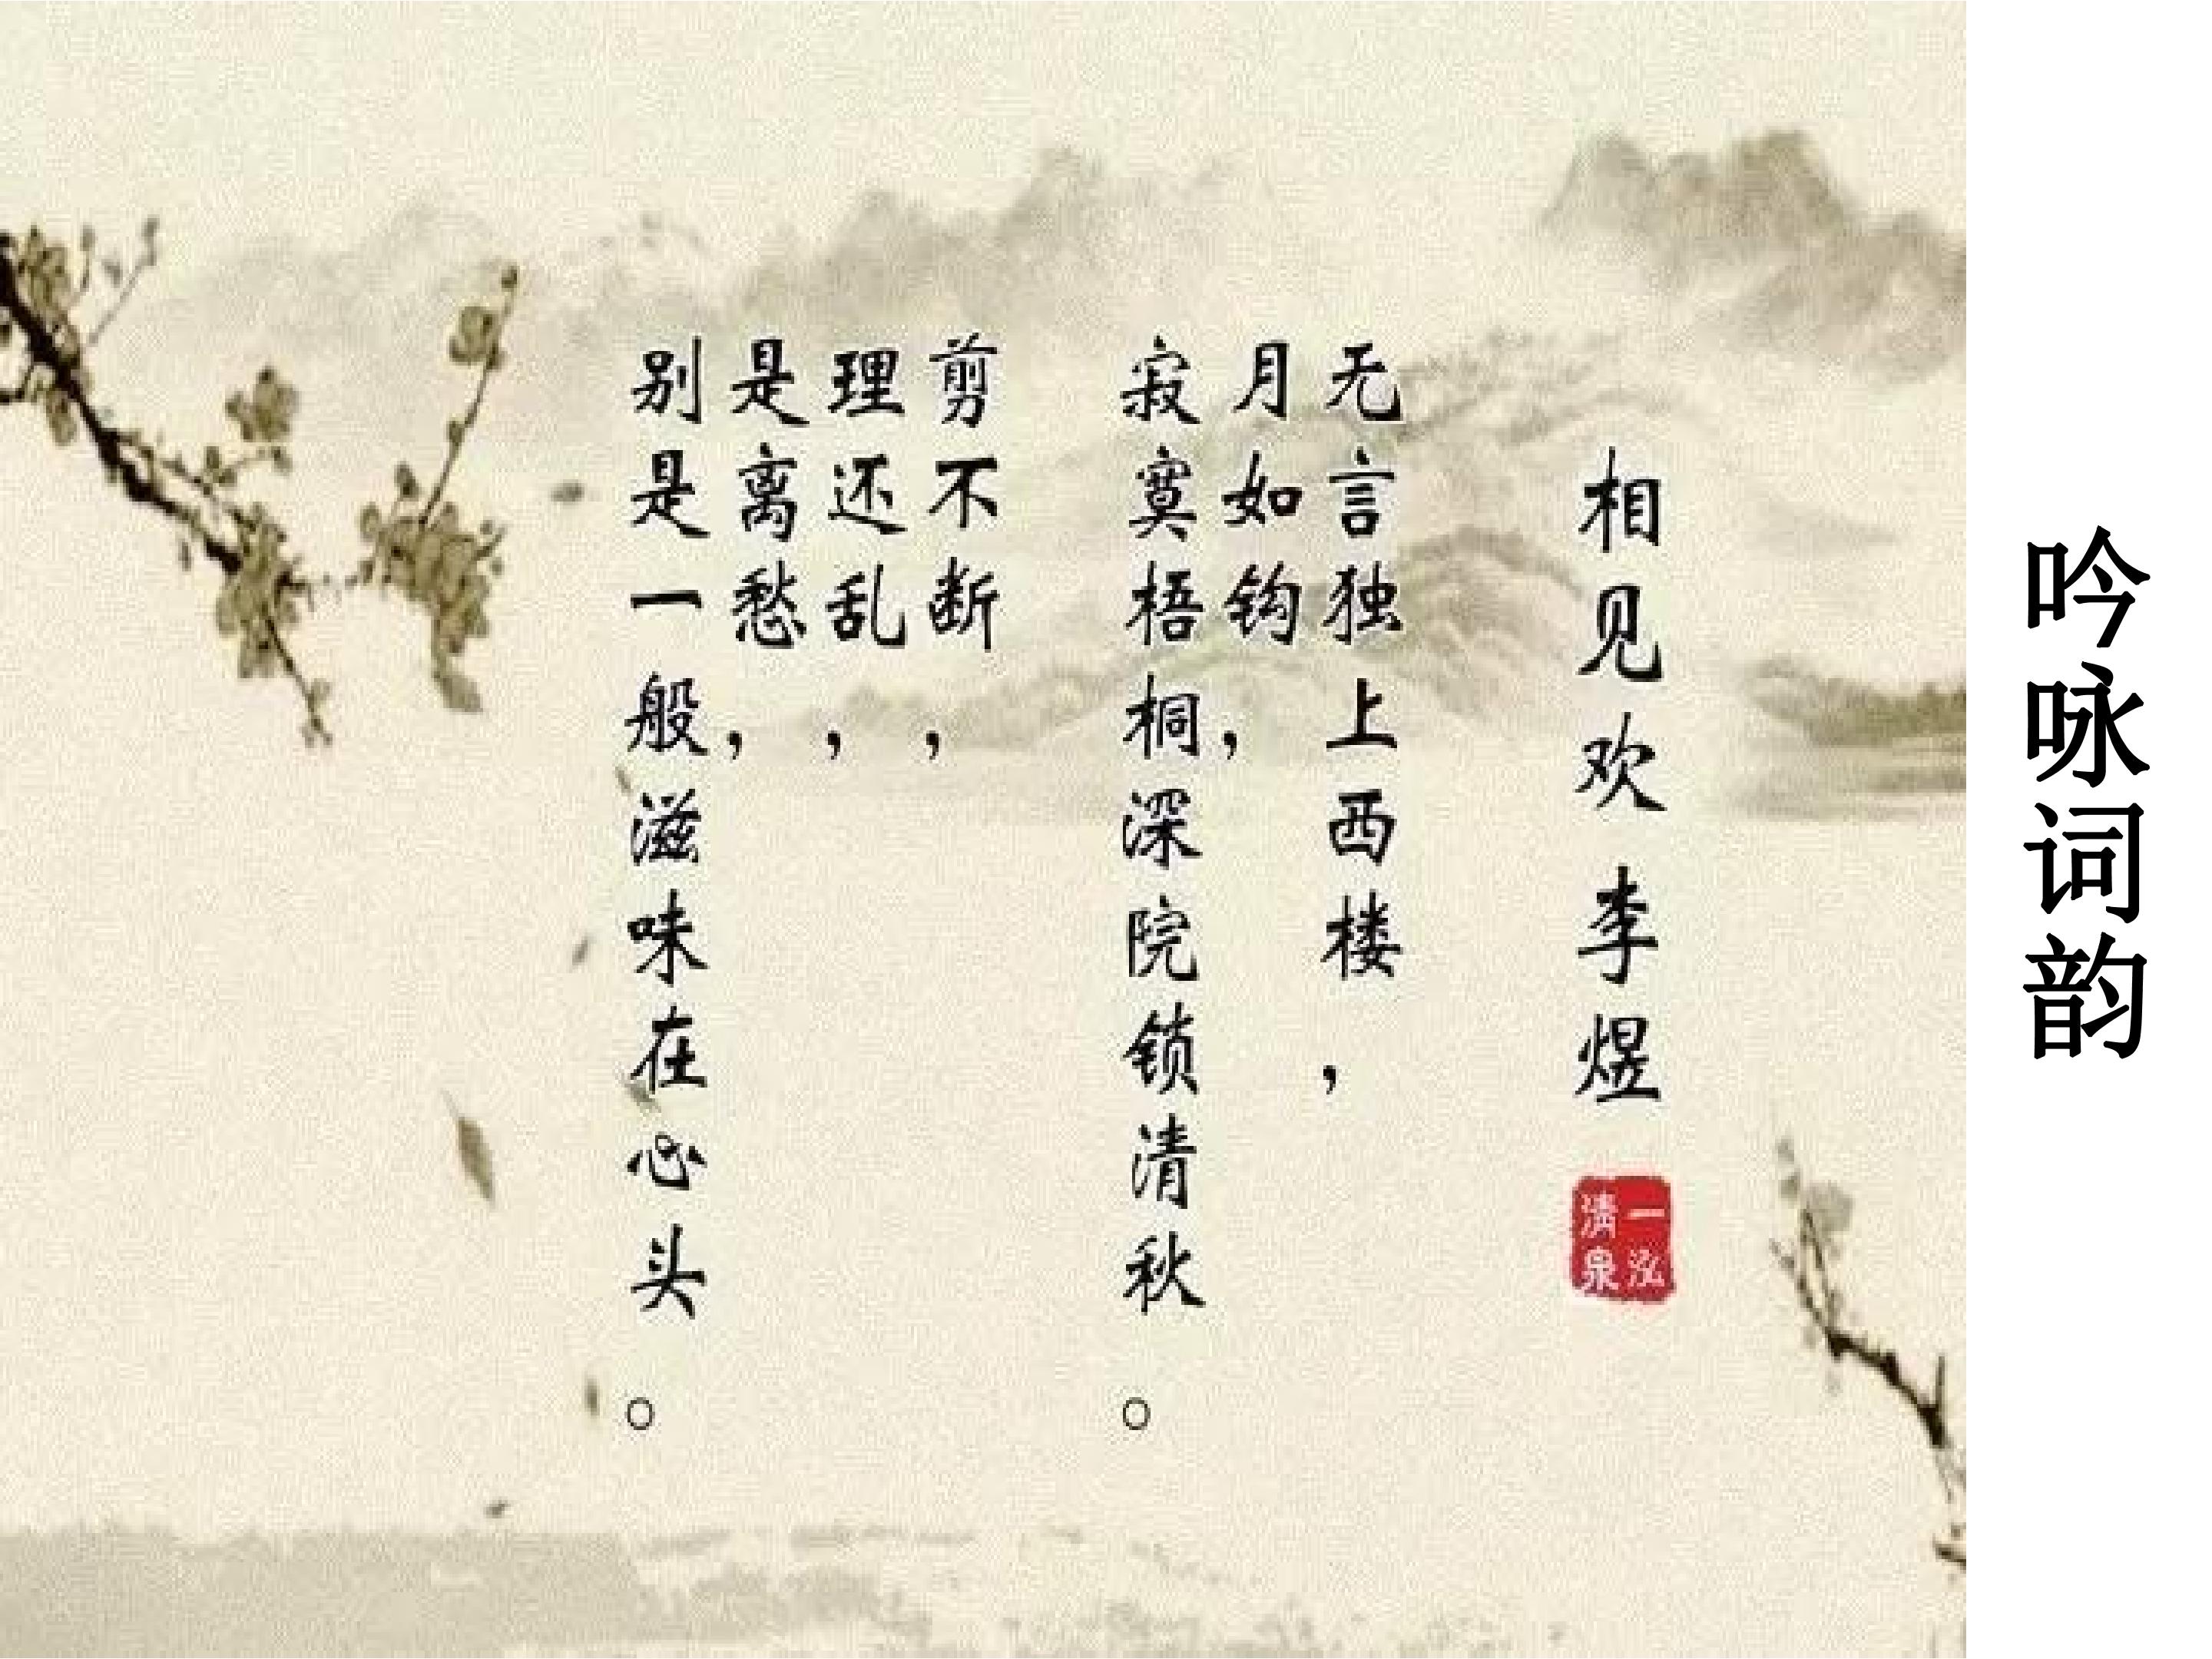 吟咏词韵
相见欢 李煜
一泓
清泉
无言独上西楼，
月如钩，
寂寞梧桐深院锁清秋。
剪不断，
理还乱，
是离愁，
别是一般滋味在心头。